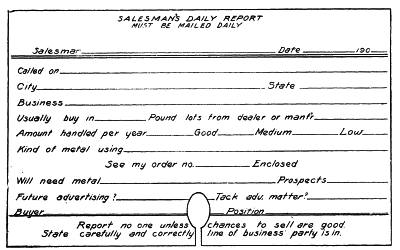 SALESMAN'S DAILY REPORT
MUST BE MAILED DAILY
Salesman Date 190
Called on
City State
Business
Usually buy in Pound lots from dealer or manfr
Amount handled per year Good Medium Low
Kind of metal using
See my order no. Enclosed
Will need metal Prospects
Future advertising? Tack adv. matter?
Buyer Position
Report no one unless chances to sell are good.
State carefully and correctly line of business party is in.